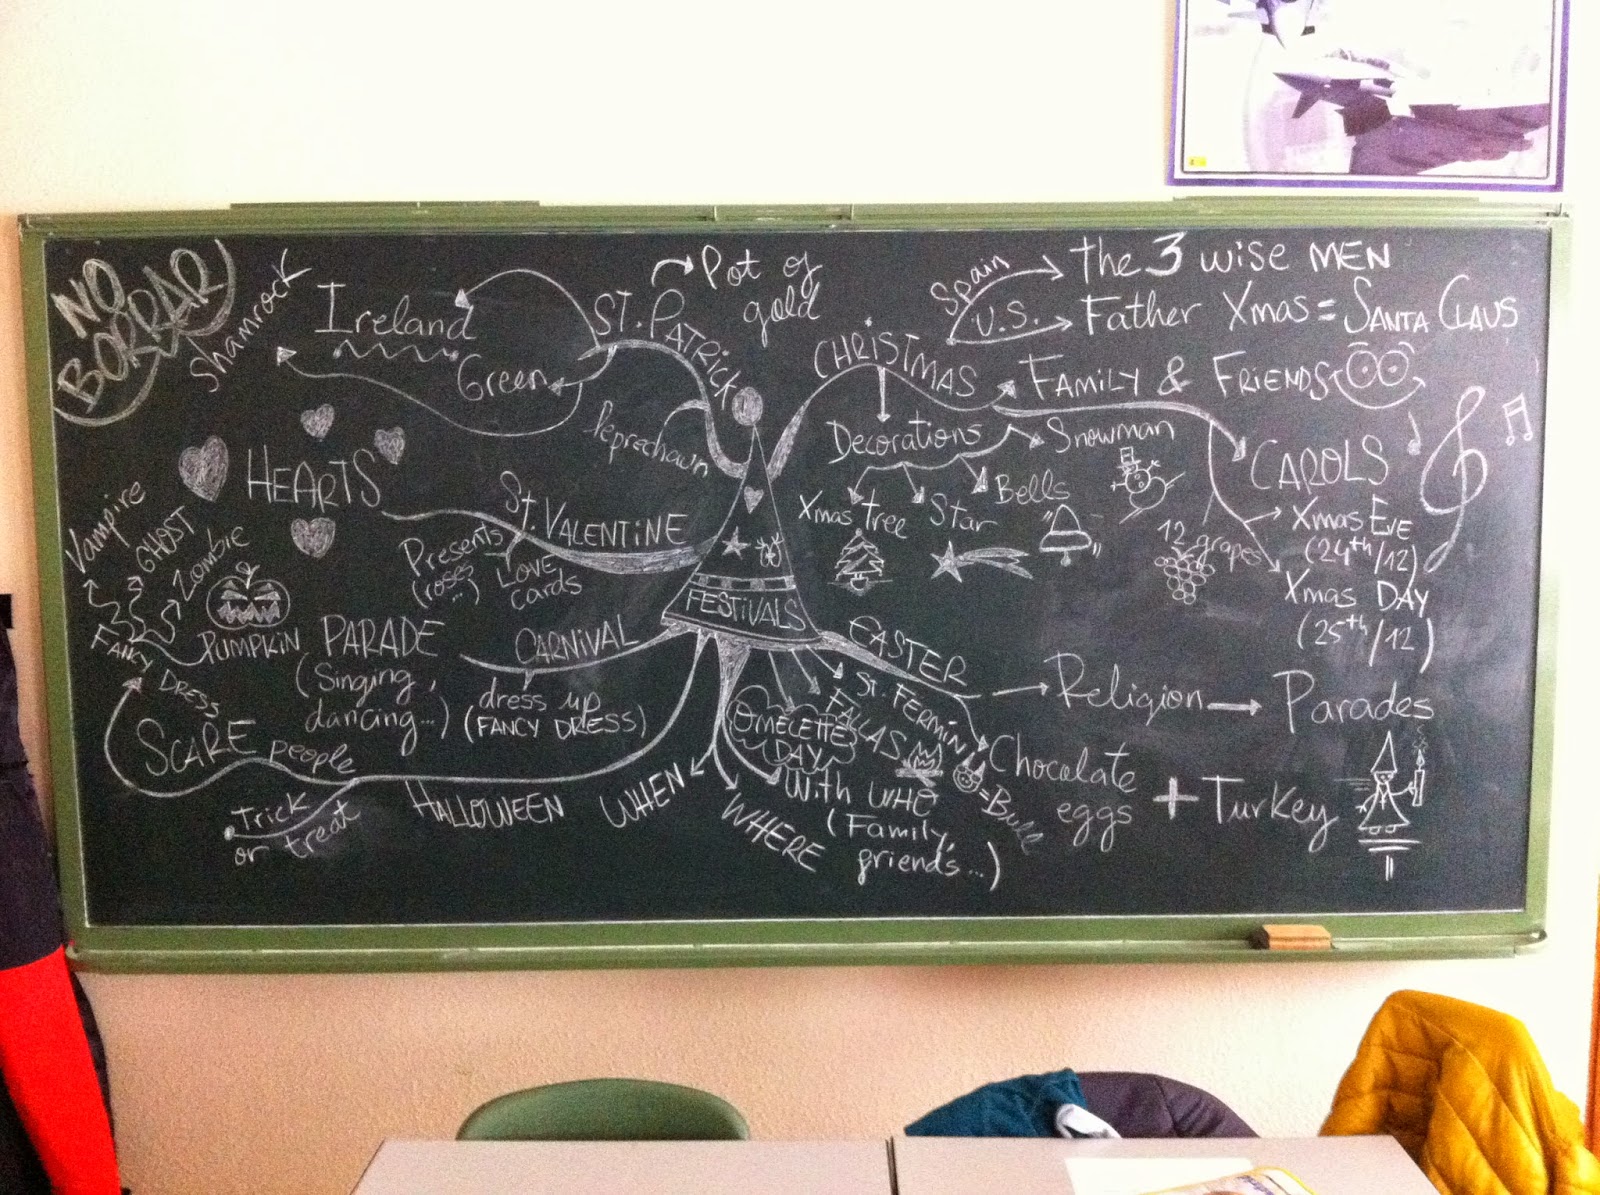 NO
BORRAR
Shamrock
Ireland
Green
ST. PATRICK
Pot of
gold
leprechawn
HEARTS
ST. VALENTINE
Presents
(roses
...)
LOVE
cards
Vampire
GHOST
Zombie
PUMPKIN
FANCY DRESS
SCARE people
Trick
or treat
HALLOWEEN
PARADE
(Singing,
dancing...)
CARNIVAL
dress up
(FANCY DRESS)
FESTIVALS
CHRISTMAS
Spain
the 3 wise MEN
U.S.
Father Xmas = SANTA CLAUS
FAMILY & FRIENDS
Decorations
Snowman
Xmas tree
Star
Bells
CAROLS
12 grapes
Xmas EVE
(24th/12)
Xmas DAY
(25th/12)
EASTER
Religion
Parades
Chocolate
eggs
+ Turkey
St. FERMIN
= Bull
FALLAS
OMELETTE
DAY
WHEN
WHERE
With WHO
(Family,
friends...)